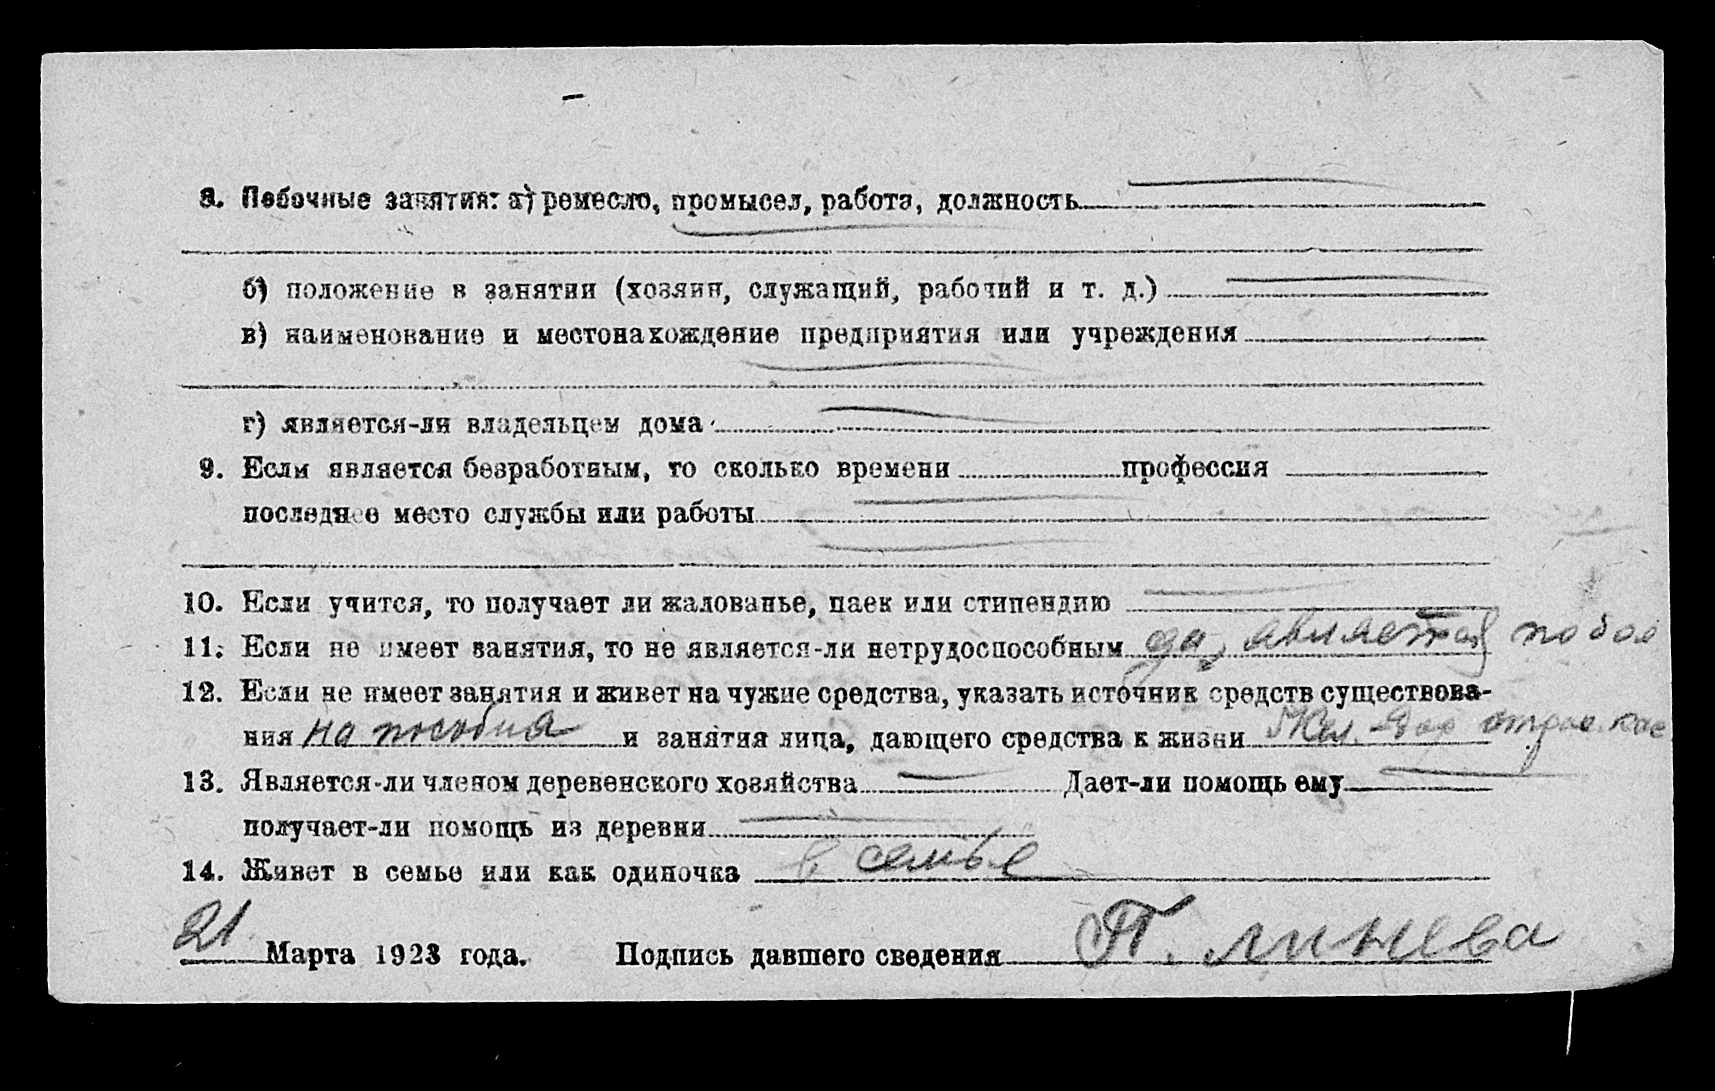 8. Побочные занятия: а) ремесло, промысел, работа, должность
б) положение в занятии (хозяин, служащий, рабочий и т. д.)
в) наименование и местонахождение предприятия или учреждения
г) является-ли владельцем дома
9. Если является безработным, то сколько времени профессия
последнее место службы или работы
10. Если учится, то получает ли жалованье, паек или стипендию
11. Если не имеет занятия, то не является-ли нетрудоспособным да, является по бол
12. Если не имеет занятия и живет на чужие средства, указать источник средств существова-
ния на пособия и занятия лица, дающего средства к жизни Жел. дор
13. Является-ли членом деревенского хозяйства Дает-ли помощь ему
получает-ли помощь из деревни
14. Живет в семье или как одиночка в семье
21 Марта 1923 года. Подпись давшего сведения П. Линева